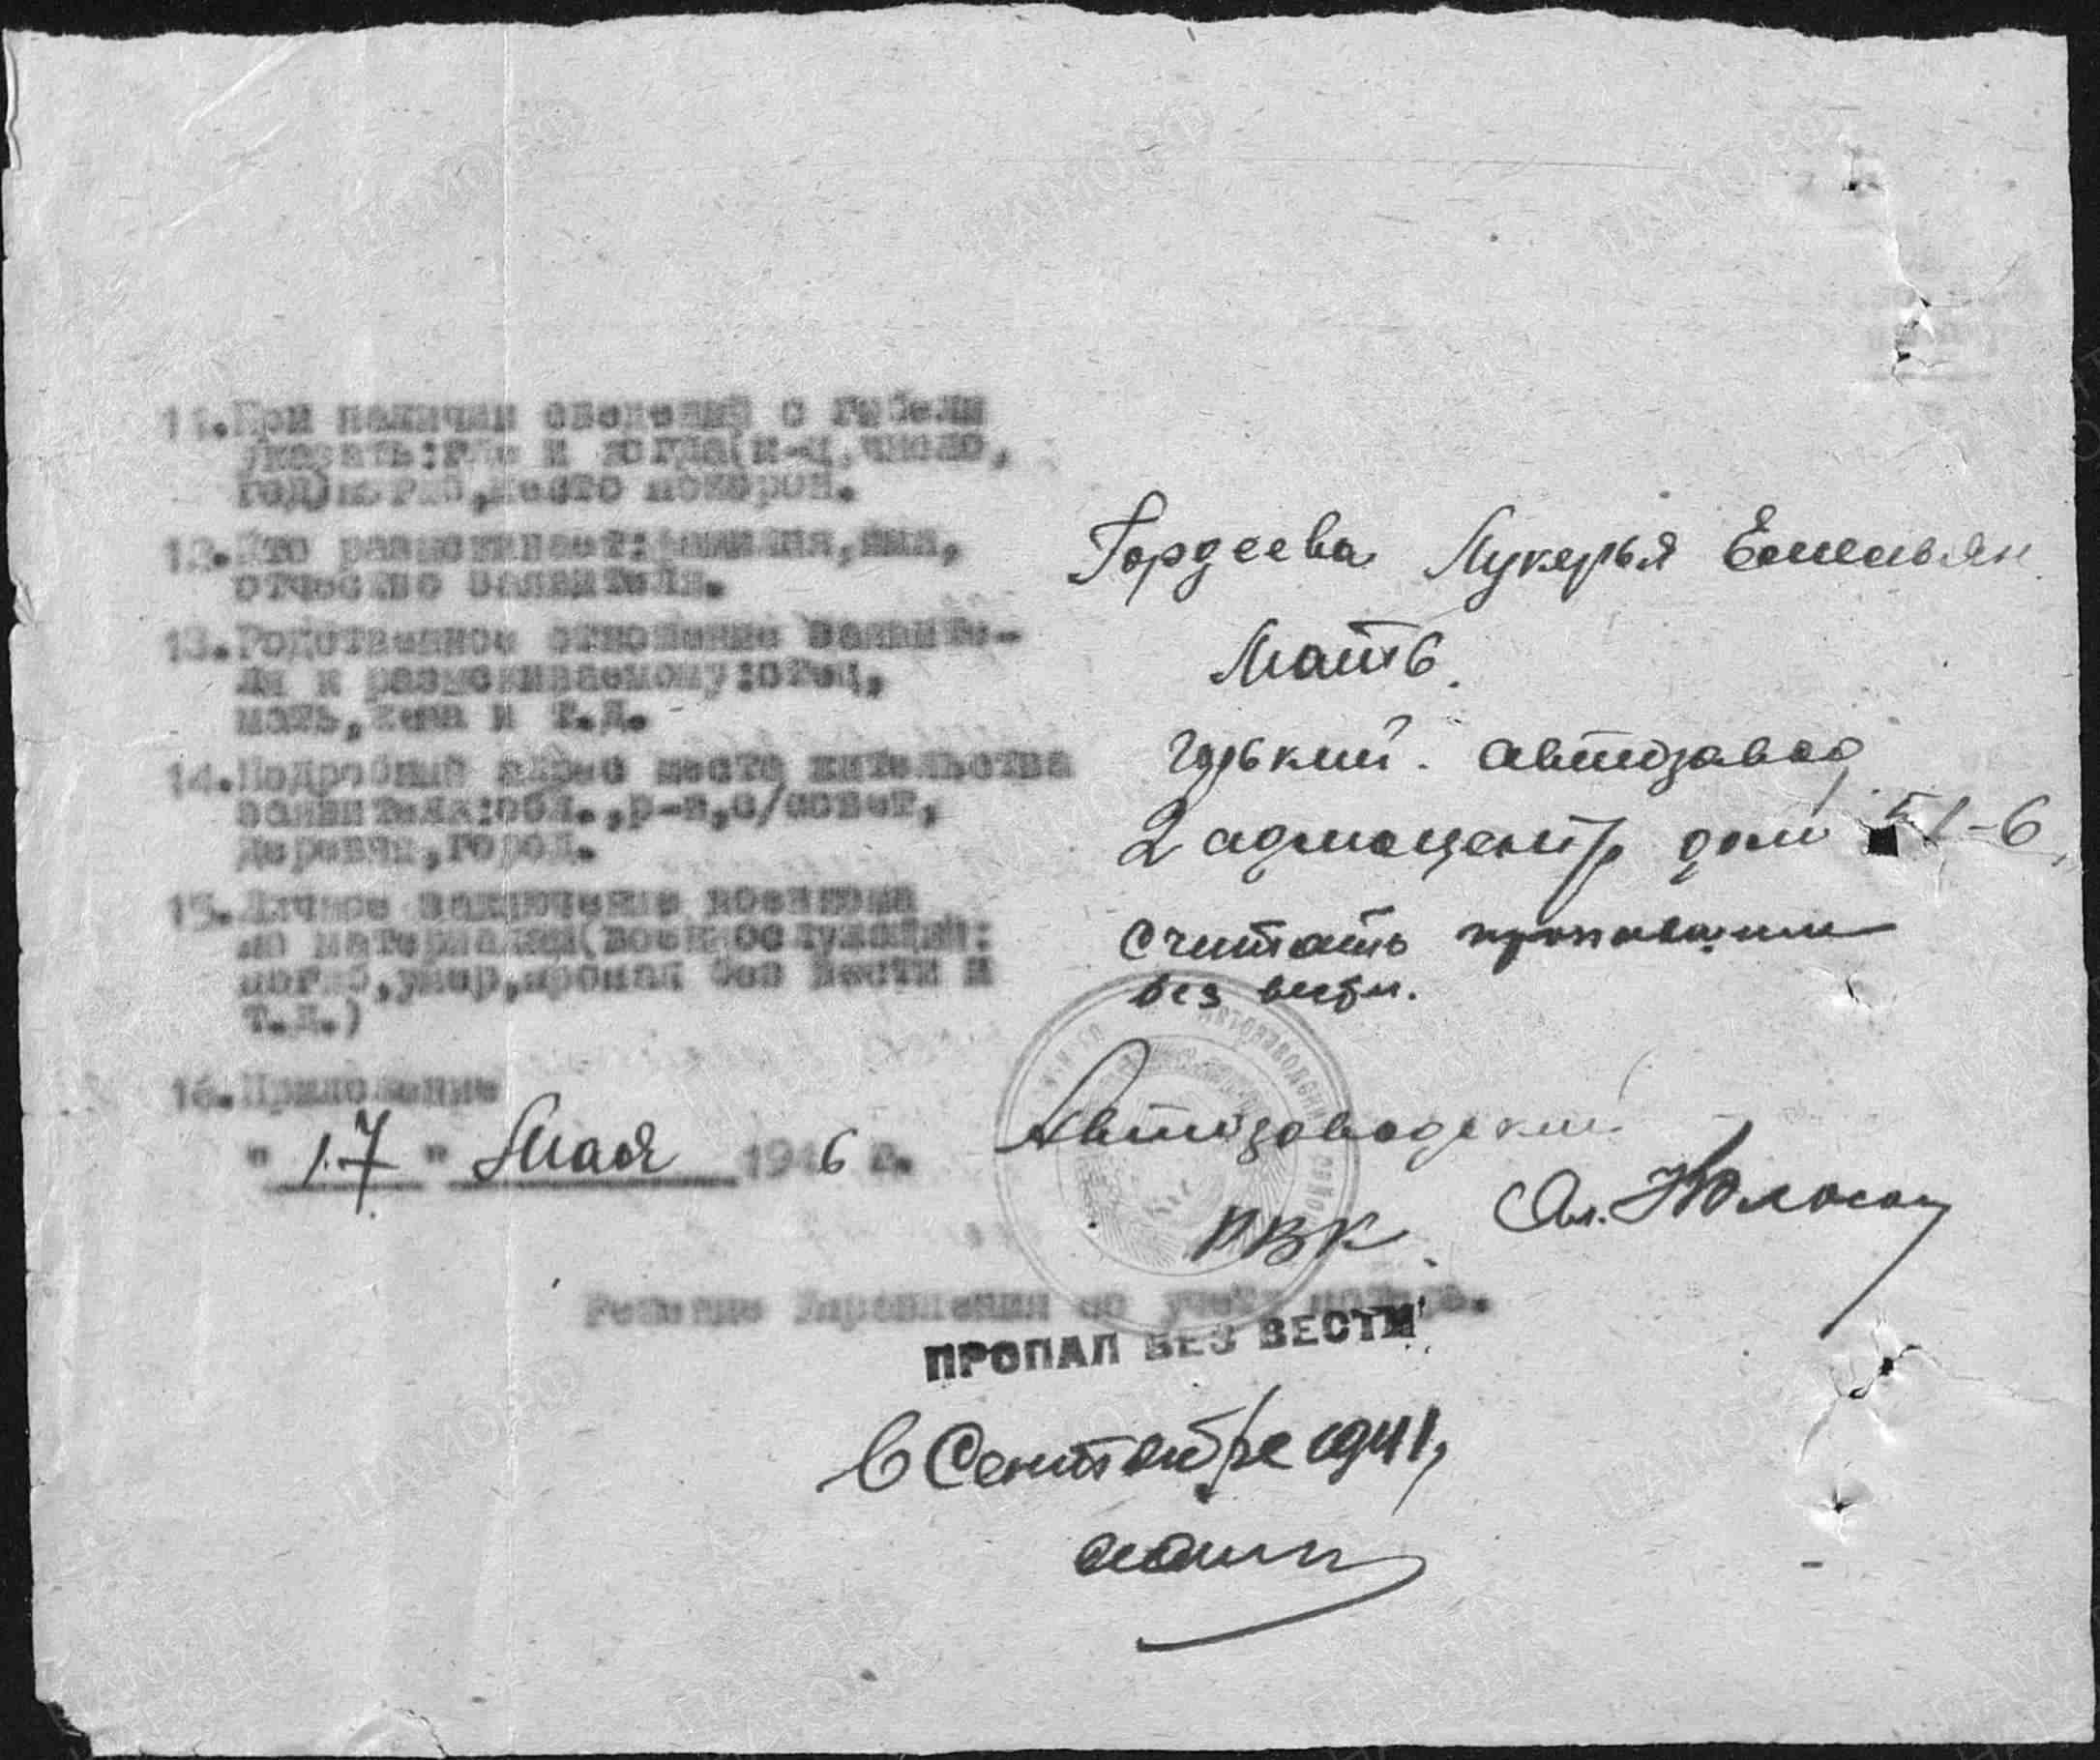 11.При наличии сведений о гибели
указать:где и когда(м-ц,число,
год)погиб,место похорон.
12.Кто разыскивает:фамилия,имя,
отчество заявителя.
Гордеева Лукерья Емельян
13.Родственное отношение заявите-
ля к разыскиваемому:отец,
мать,жена и т.д.
Мать.
14.Подробный адрес места жительства
заявителя:обл.,р-н,с/совет,
деревня,город.
горький. автозавод
2 адмоцентр дом 51-6
15.Личное заключение военкома
по материалам(военнослужащий:
погиб,умер,пропал без вести и
т.д.)
считать пропавшим
без вести.
16.Приложение
" 17 " Мая 1946 г.
Автозаводский
РВК
Решение Управления по учету
ПРОПАЛ БЕЗ ВЕСТИ
в Сентябре 1941,